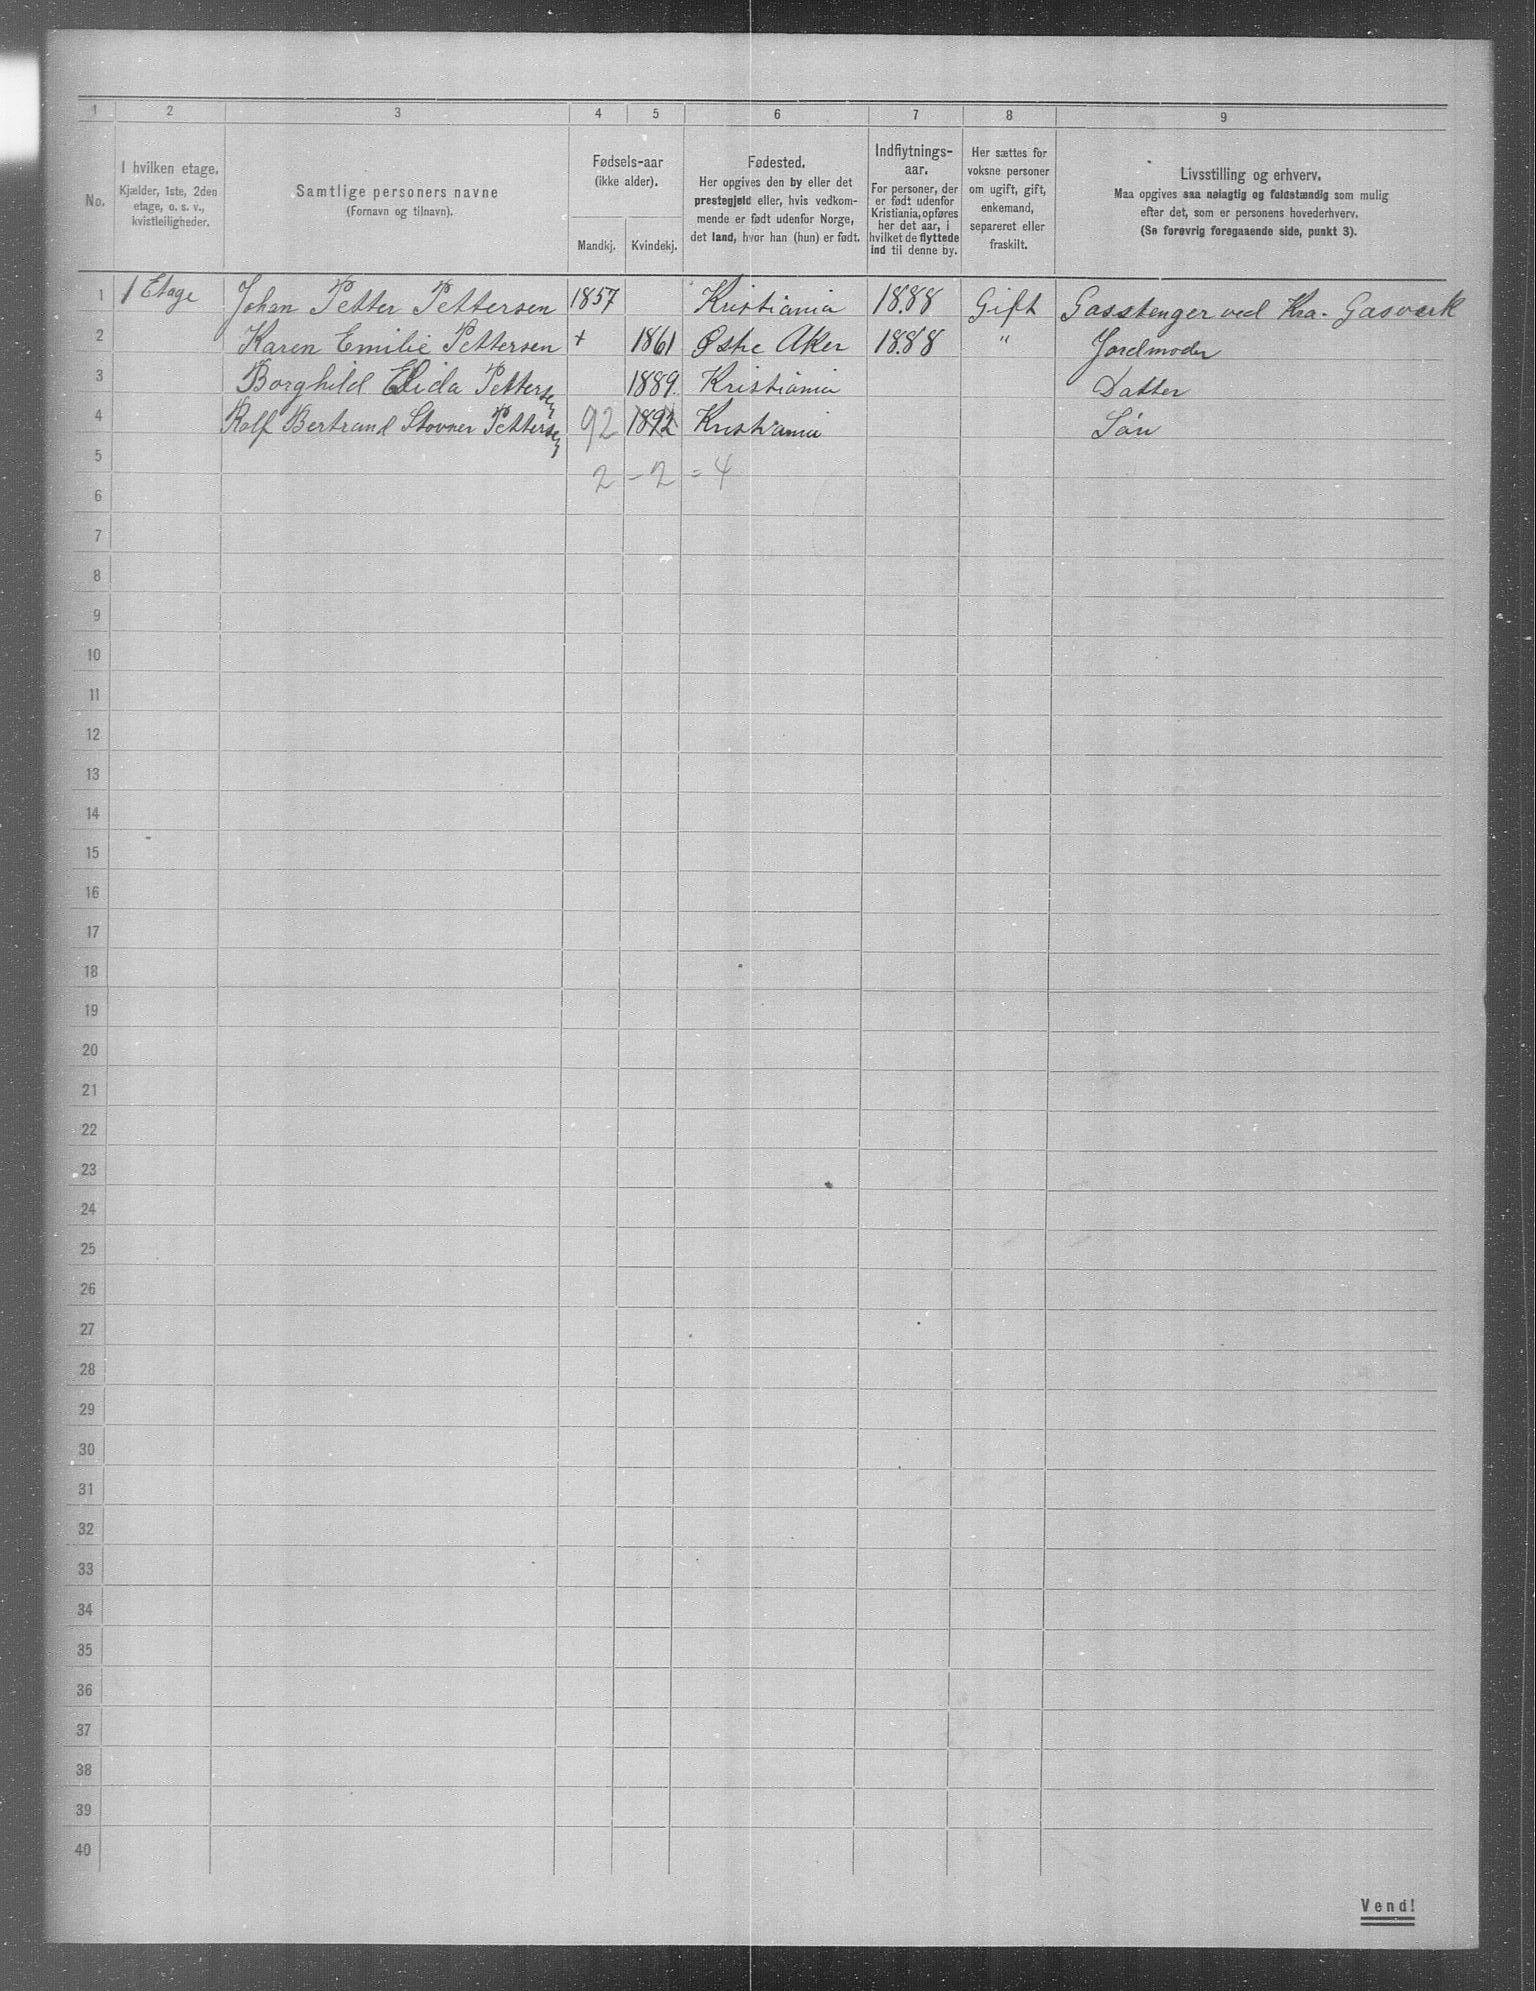 1 2 3 4 5 6 7 8 9
No.
I hvilken etage.
Kjælder, 1ste, 2den
etage, o. s. v.,
kvistleiligheder.
Samtlige personers navne
(Fornavn og tilnavn).
Fødsels-aar
(ikke alder).
Mandkj. Kvindekj.
Fødested.
Her opgives den by eller det
prestegjeld eller, hvis vedkom-
mende er født udenfor Norge,
det land, hvor han (hun) er født.
Indflytnings-
aar.
For personer, der
er født udenfor
Kristiania, opføres
her det aar, i
hvilket de flyttede
ind til denne by.
Her sættes for
voksne personer
om ugift, gift,
enkemand,
separeret eller
fraskilt.
Livsstilling og erhverv.
Maa opgives saa nøiagtig og fuldstændig som mulig
efter det, som er personens hovederhverv.
(Se forøvrig foregaaende side, punkt 3).
1 1 Etage Johan Petter Pettersen 1857 Kristiania 1888 Gift Gasstenger ved Kra. Gasværk
2 Karen Emilie Pettersen + 1861 Østre Aker 1888 " Jordmoder
3 Borghild Elida Pettersen 1889. Kristiania Datter
4 Rolf Bertrand Stovner Pettersen 92 1892 Kristiania Søn
5 2 - 2 = 4
6
7
8
9
10
11
12
13
14
15
16
17
18
19
20
21
22
23
24
25
26
27
28
29
30
31
32
33
34
35
36
37
38
39
40
Vend!